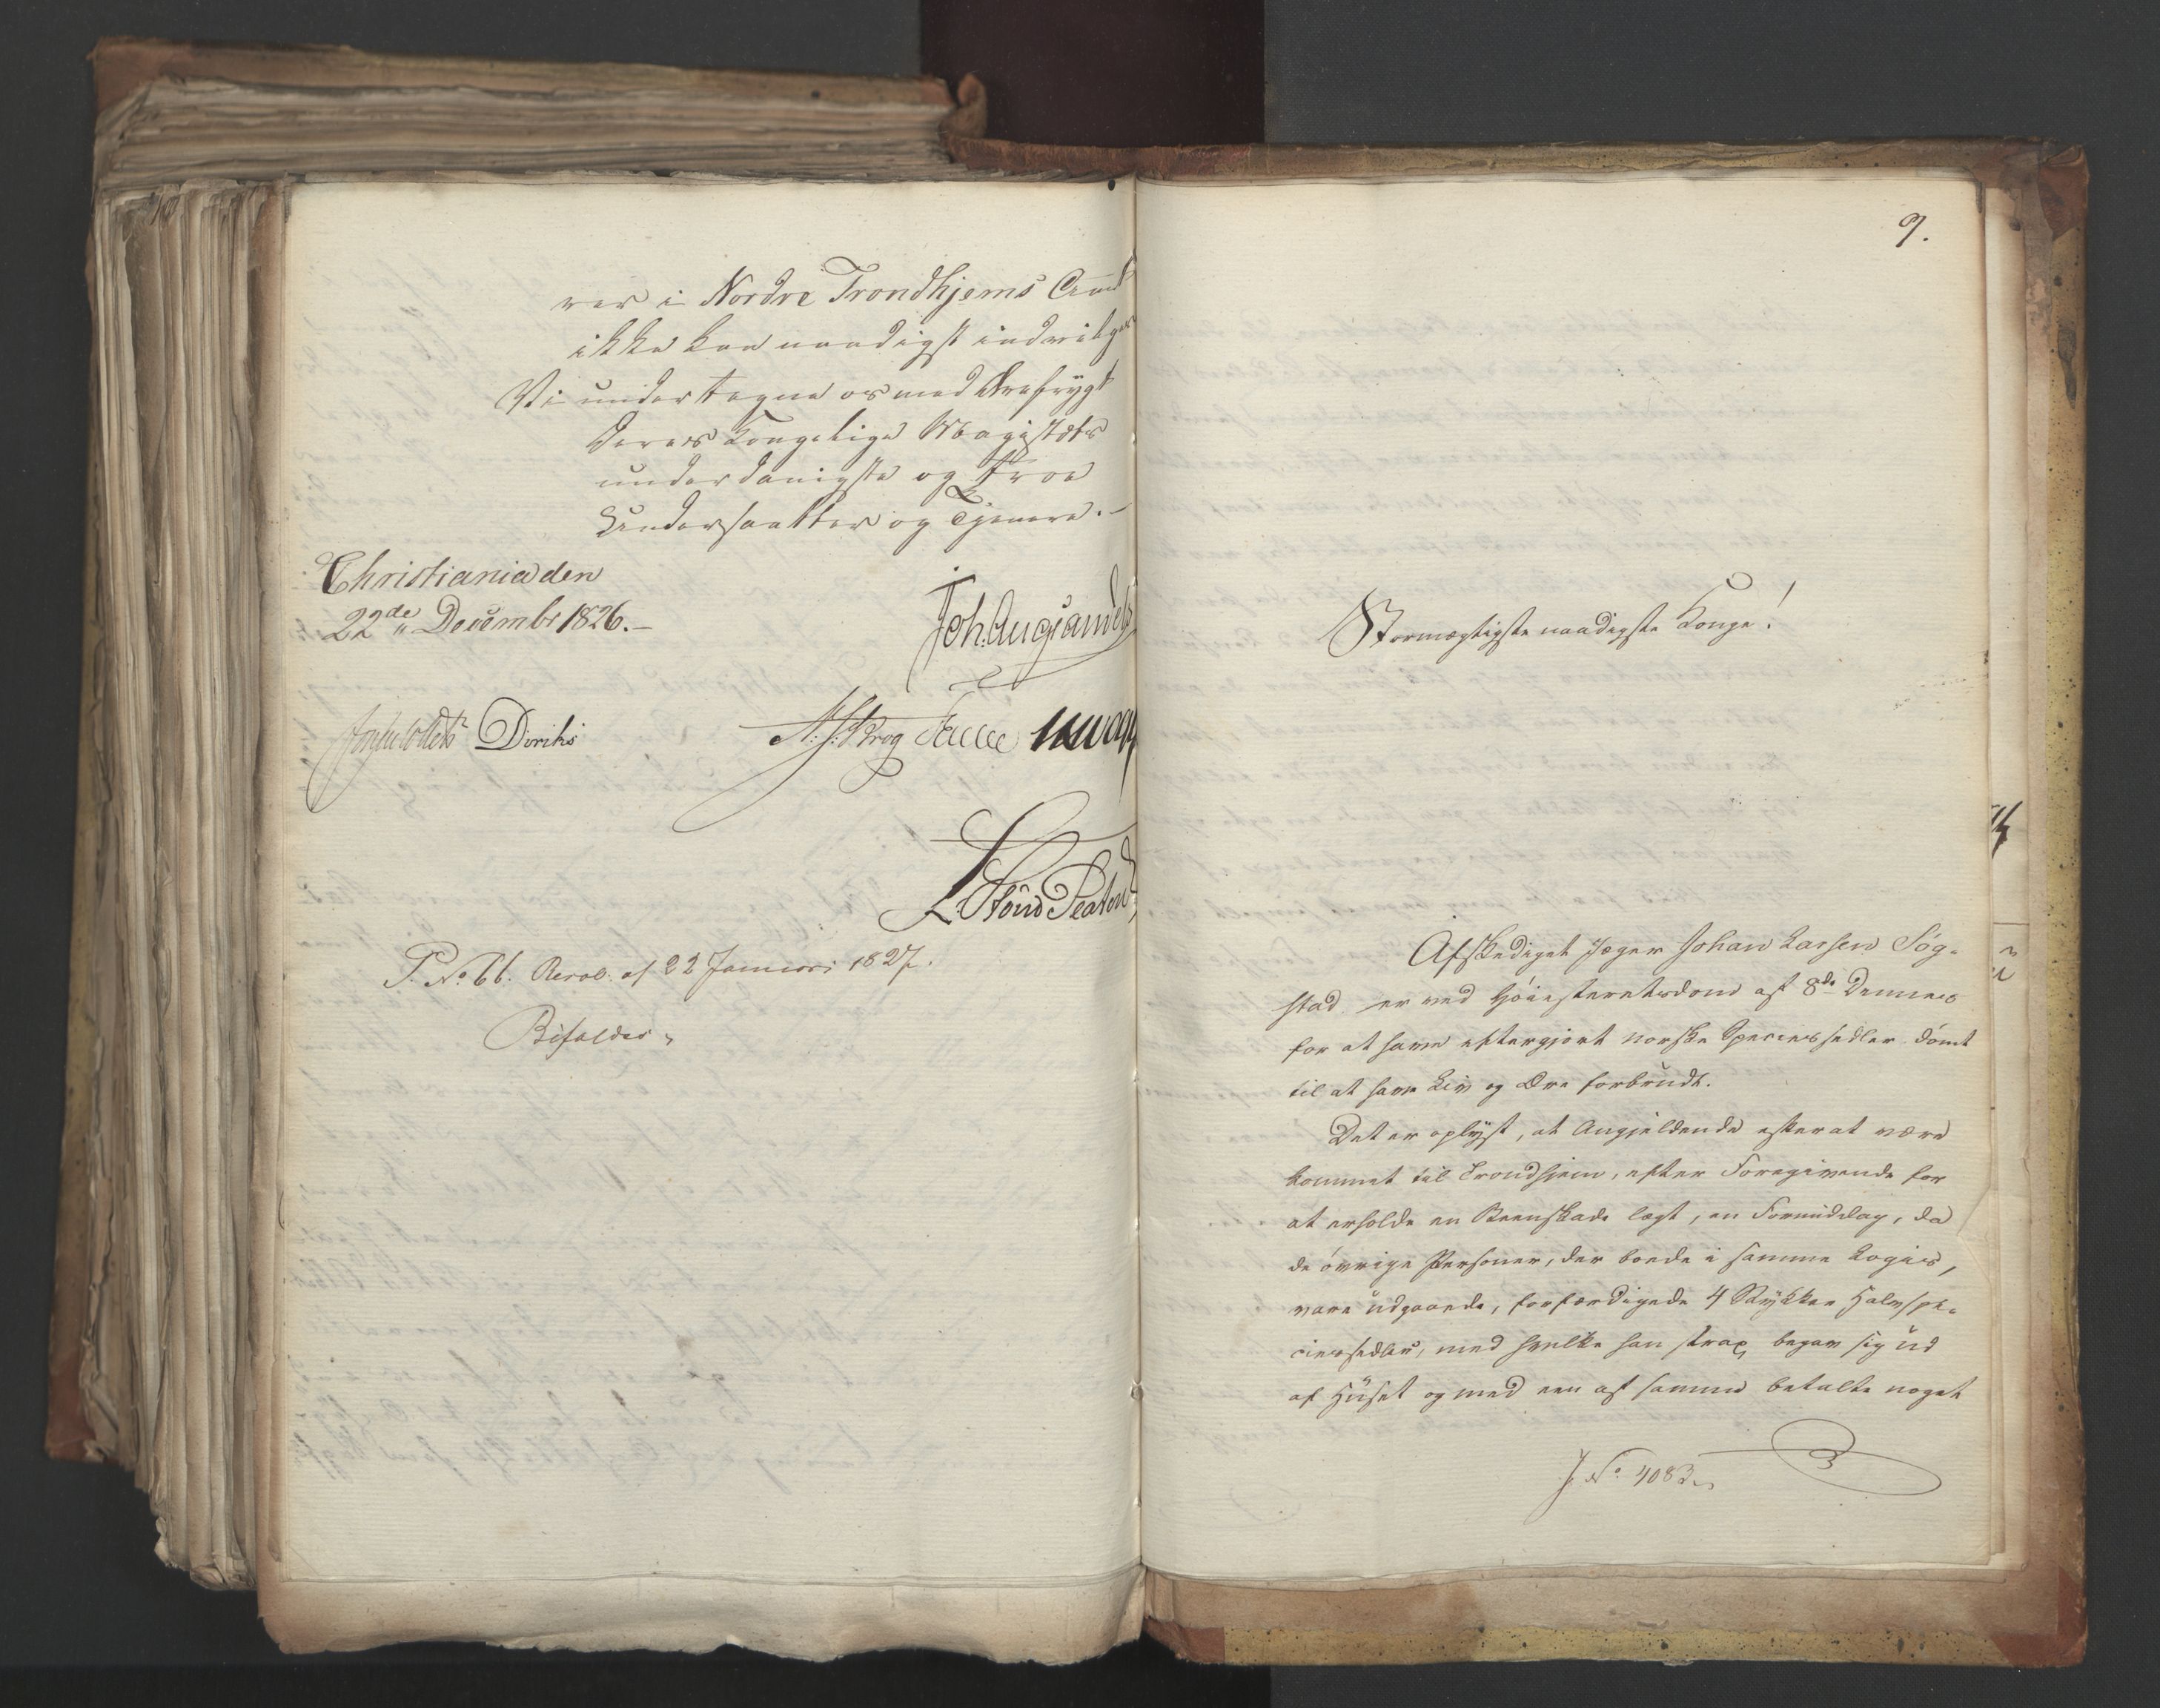 ver i Nordre Trondhjems Amt
ikke kan naadigst indvilges
Vi undertegne os med Ærefrygt
Deres Kongelige Majestæts
underdanigste og troe
Undersaatter og Tjenere.-
Christiania den
22de Decembr 1826.-
Joh. Aug. Sandels
Diriks
Krog Fasting
L. Stoud Platou
P. No. 66. Resol. af 22 Januari 1827.
Bifaldes.
9.
Stormægtigste naadigste Konge!
Afskediget Jæger Johan Larsen Søg-
stad er ved Høiesteretsdom af 8de Dennes
for at have eftergjort norske Speciessedler dømt
til at have Liv og Ære forbrudt.
Det er oplyst, at Angjeldende efter at være
kommet til Trondhjem, efter Foregivende for
at erholde en Beenskade lægt, en Formiddag, da
de øvrige Personer, der boede i samme Logis,
vare udgaaende, forfærdigede 4 Stykker Halvspe-
ciessedler, med hvilke han strax begav sig ud
af Huset og med een af samme betalte noget
J. No. 4083